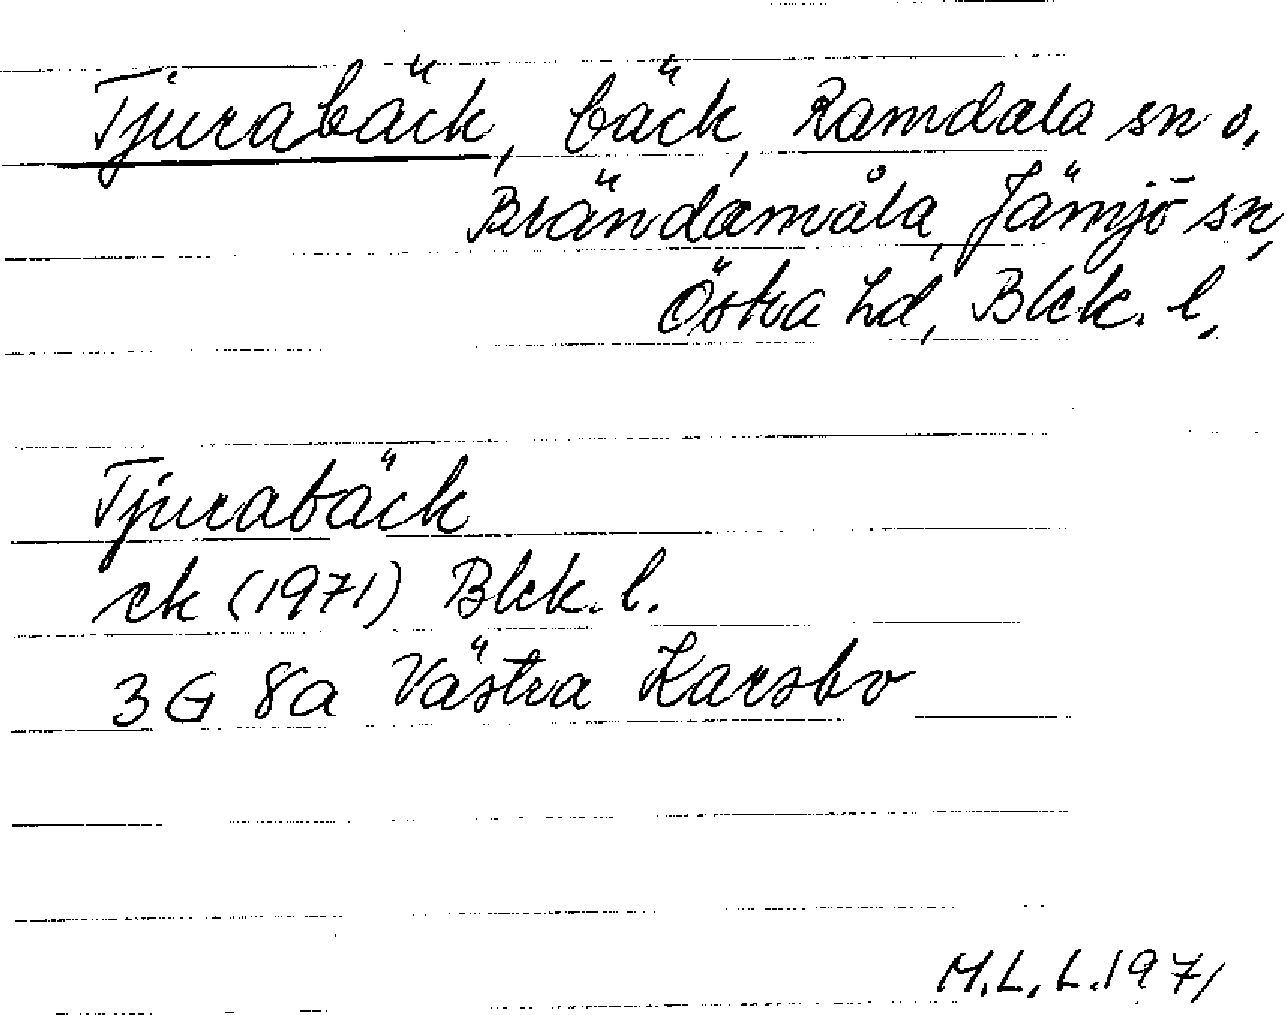 Tjurabäck, bäck, Ramdala sn o.
Brändamåla, Jämjö sn,
Östra hd, Blek. l.
Tjurabäck
ek (1971) Blek. l.
3 G 8a Västra Karsbo
M.L.L. 1971